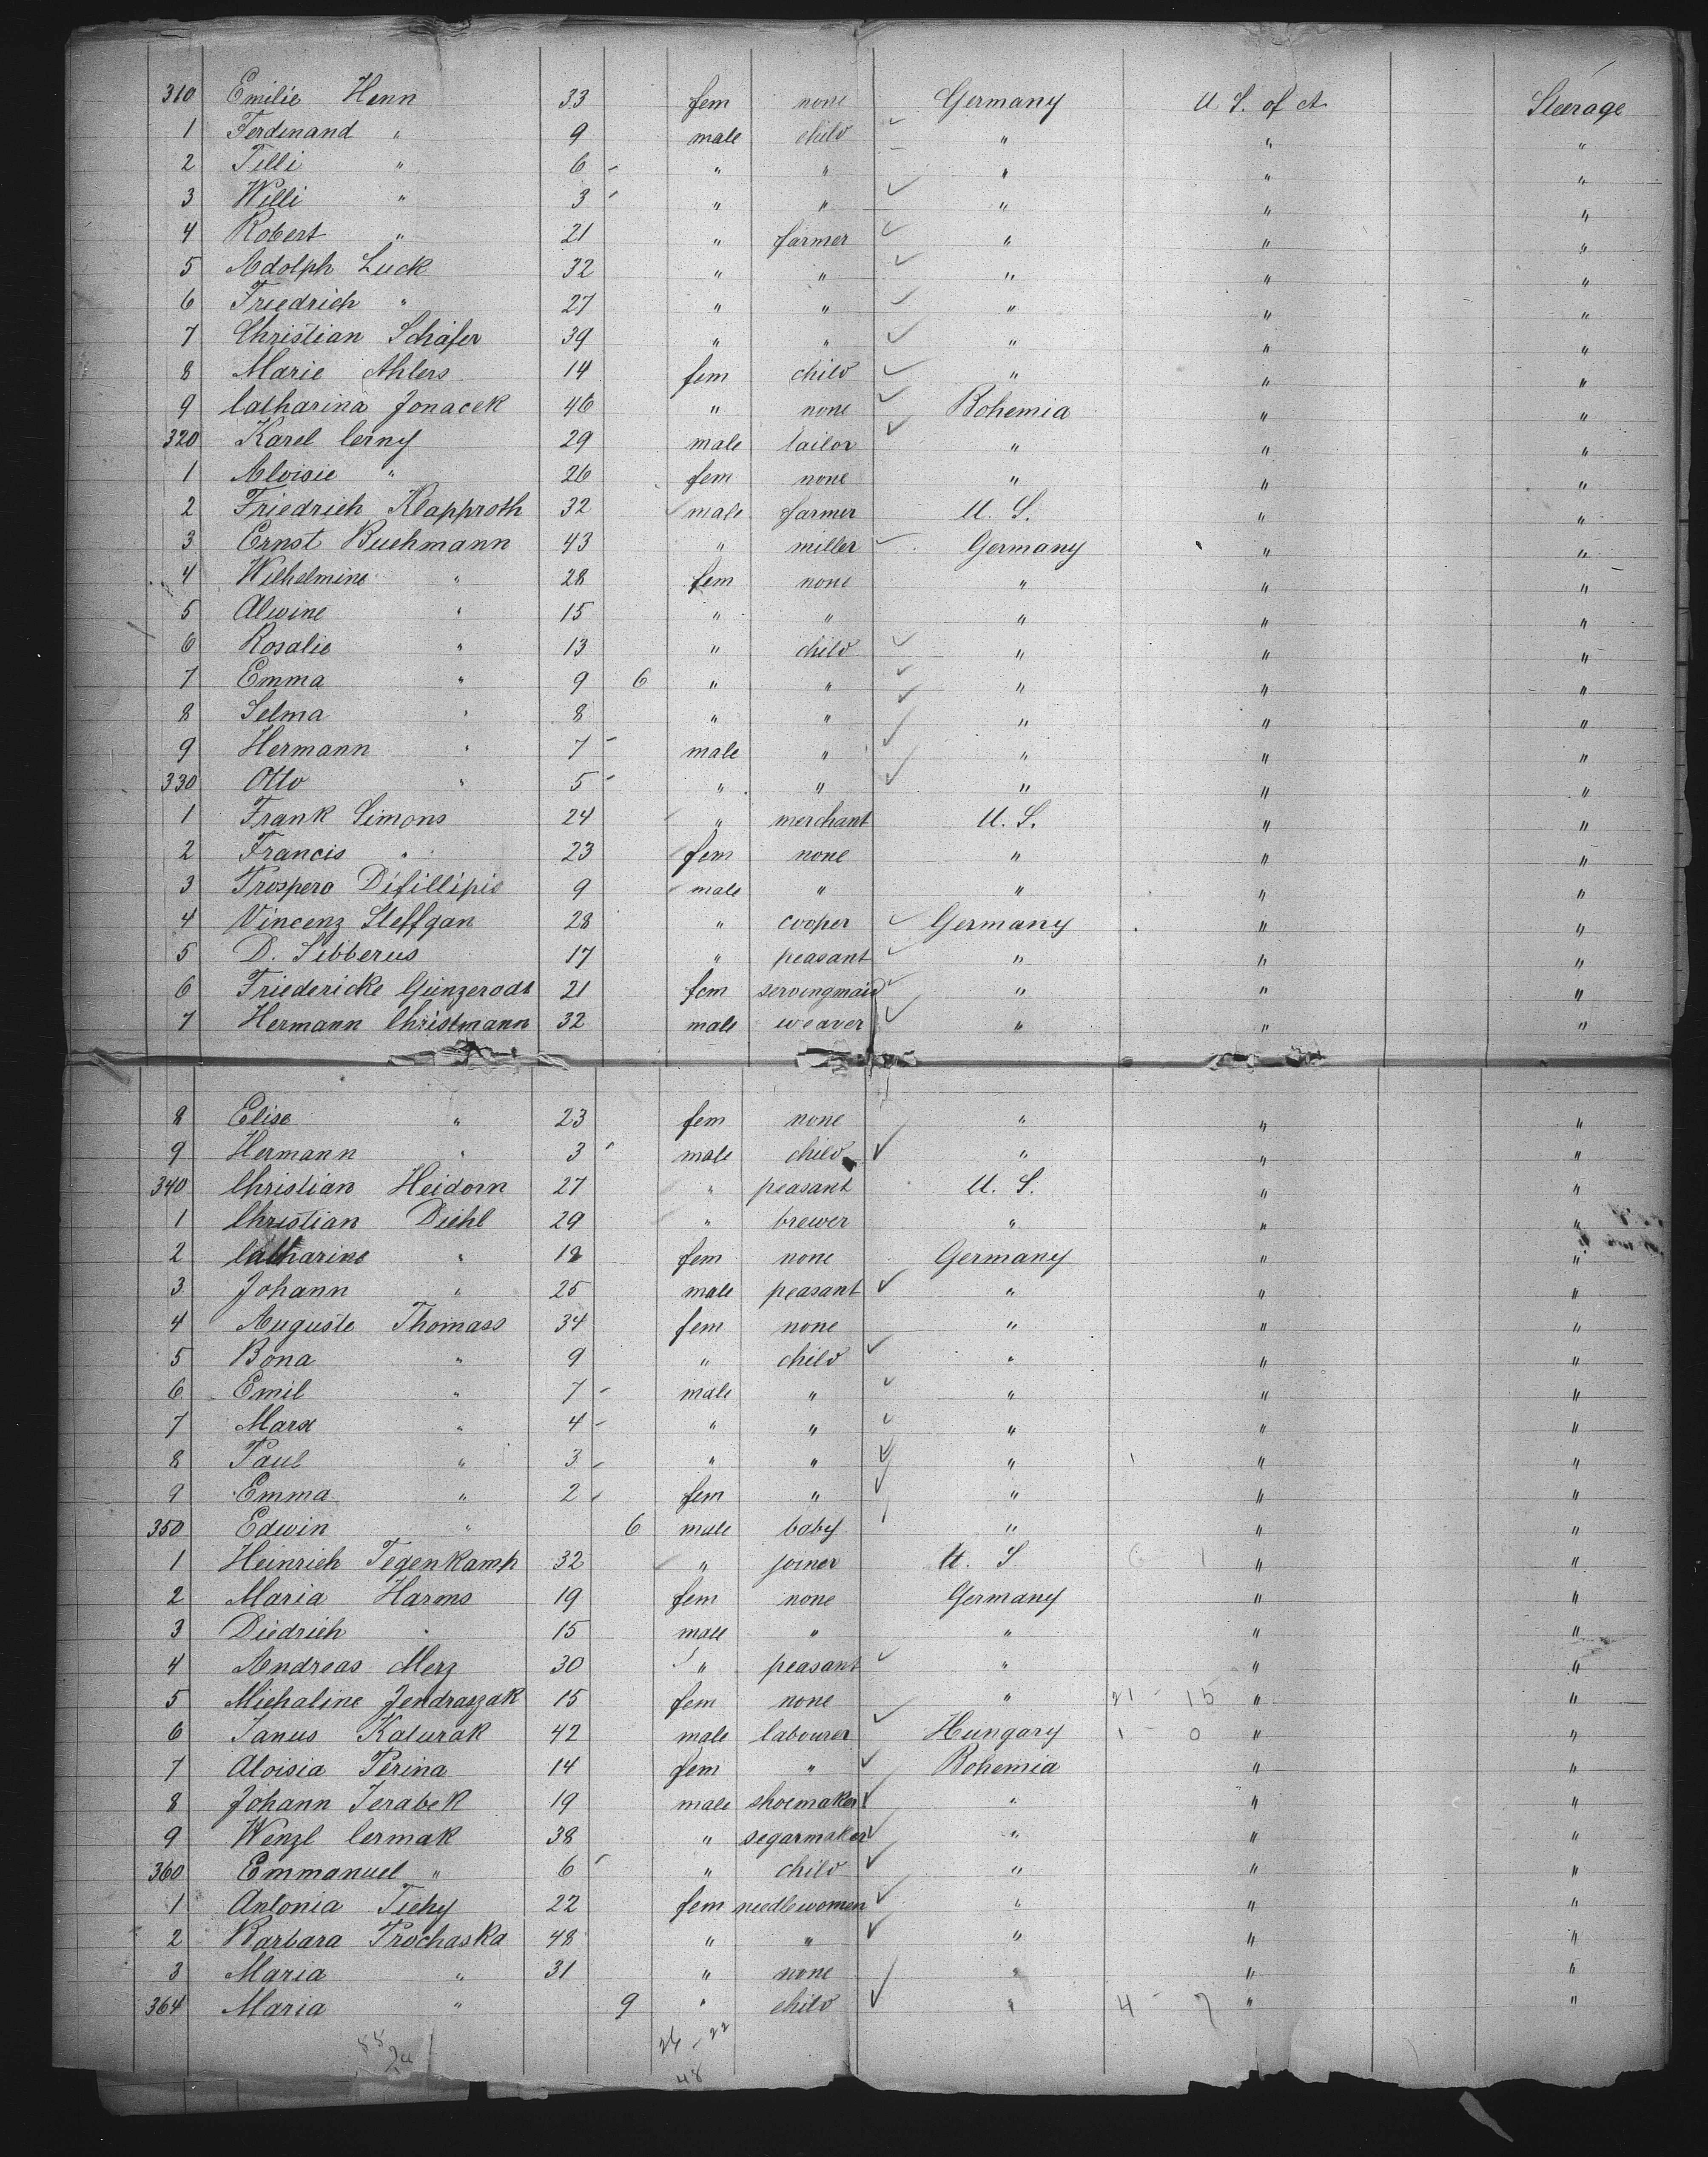 310 Emilie Henn 33 fem none Germany U. S. of A Steerage
1 Ferdinand " 9 male child " " "
2 Tilli " 6 " " " " "
3 Willi " 3 " " " " "
4 Robert " 21 " farmer " " "
5 Adolph Luck 32 " " " " "
6 Friedrich " 27 " " " " "
7 Christian Schäfer 39 " " " " "
8 Marie Ahlers 14 fem child " " "
9 Catharina Jonacek 46 " none Bohemia " "
320 Karel Cerny 29 male tailor " " "
1 Aloisie " 26 fem none " " "
2 Friedrich Klapproth 32 male farmer U. S. " "
3 Ernst Buchmann 43 " miller Germany " "
4 Wilhelmine " 28 fem none " " "
5 Alwine " 15 " " " " "
6 Rosalie " 13 " child " " "
7 Emma " 9 6 " " " " "
8 Selma " 8 " " " " "
9 Hermann " 7 male " " " "
330 Otto " 5 " " " " "
1 Frank Simons 24 " merchant U. S. " "
2 Francis " 23 fem none " " "
3 Prospero Difillipio 9 male " " " "
4 Vincenz Steffgan 28 " cooper Germany " "
5 D. Sibberus 17 " peasant " " "
6 Friedericke Günzerodt 21 fem servingmaid " " "
7 Hermann Christmann 32 male weaver " " "
8 Elise " 23 fem none " " "
9 Hermann " 3 male child " " "
340 Christian Heidorn 27 " peasant U. S. " "
1 Christian Diehl 29 " brewer " " "
2 Catharine " 18 fem none Germany " "
3 Johann " 25 male peasant " " "
4 Auguste Thomass 34 fem none " " "
5 Bona " 9 " child " " "
6 Emil " 7 male " " " "
7 Marx " 4 " " " " "
8 Paul " 3 " " " " "
9 Emma " 2 fem " " " "
350 Edwin " 6 male baby " " "
1 Heinrich Tegenkamp 32 " joiner U. S 6 1 " "
2 Maria Harms 19 fem none Germany " "
3 Diedrich " 15 male " " " "
4 Andreas Merz 30 " peasant " " "
5 Michaline Jendraszak 15 fem none " 21 - 15 " "
6 Janus Katurak 42 male labourer Hungary 1 - 0 " "
7 Aloisia Perina 14 fem " Bohemia " "
8 Johann Jerabek 19 male shoemaker " " "
9 Wenzl Cermak 38 " segarmaker " " "
360 Emmanuel " 6 " child " " "
1 Antonia Tichy 22 fem needlewomen " " "
2 Barbara Prochaska 48 " " " " "
3 Maria " 31 " none " " "
364 Maria " 9 " child " 4 - 7 " "
26 - 22
48